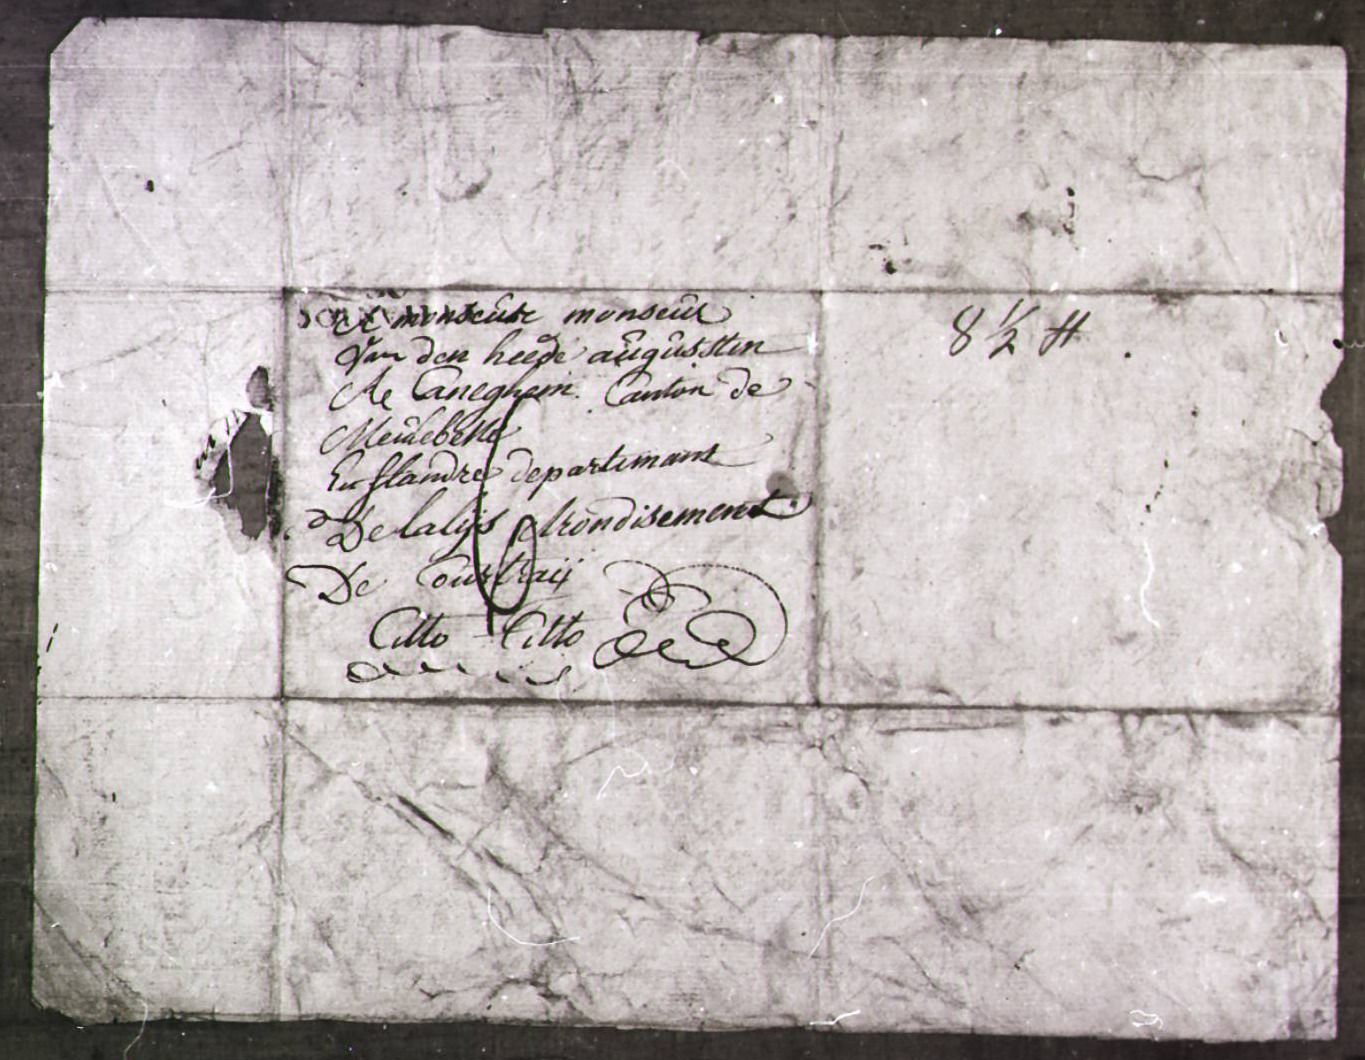 A monseur monseur
Van den heede augusstin
Ae Caneghem Canton de
Meulebeke
En flandre departemant
De la lijs Arondisement
De Courtraij
Citto Citto
8 ½ H